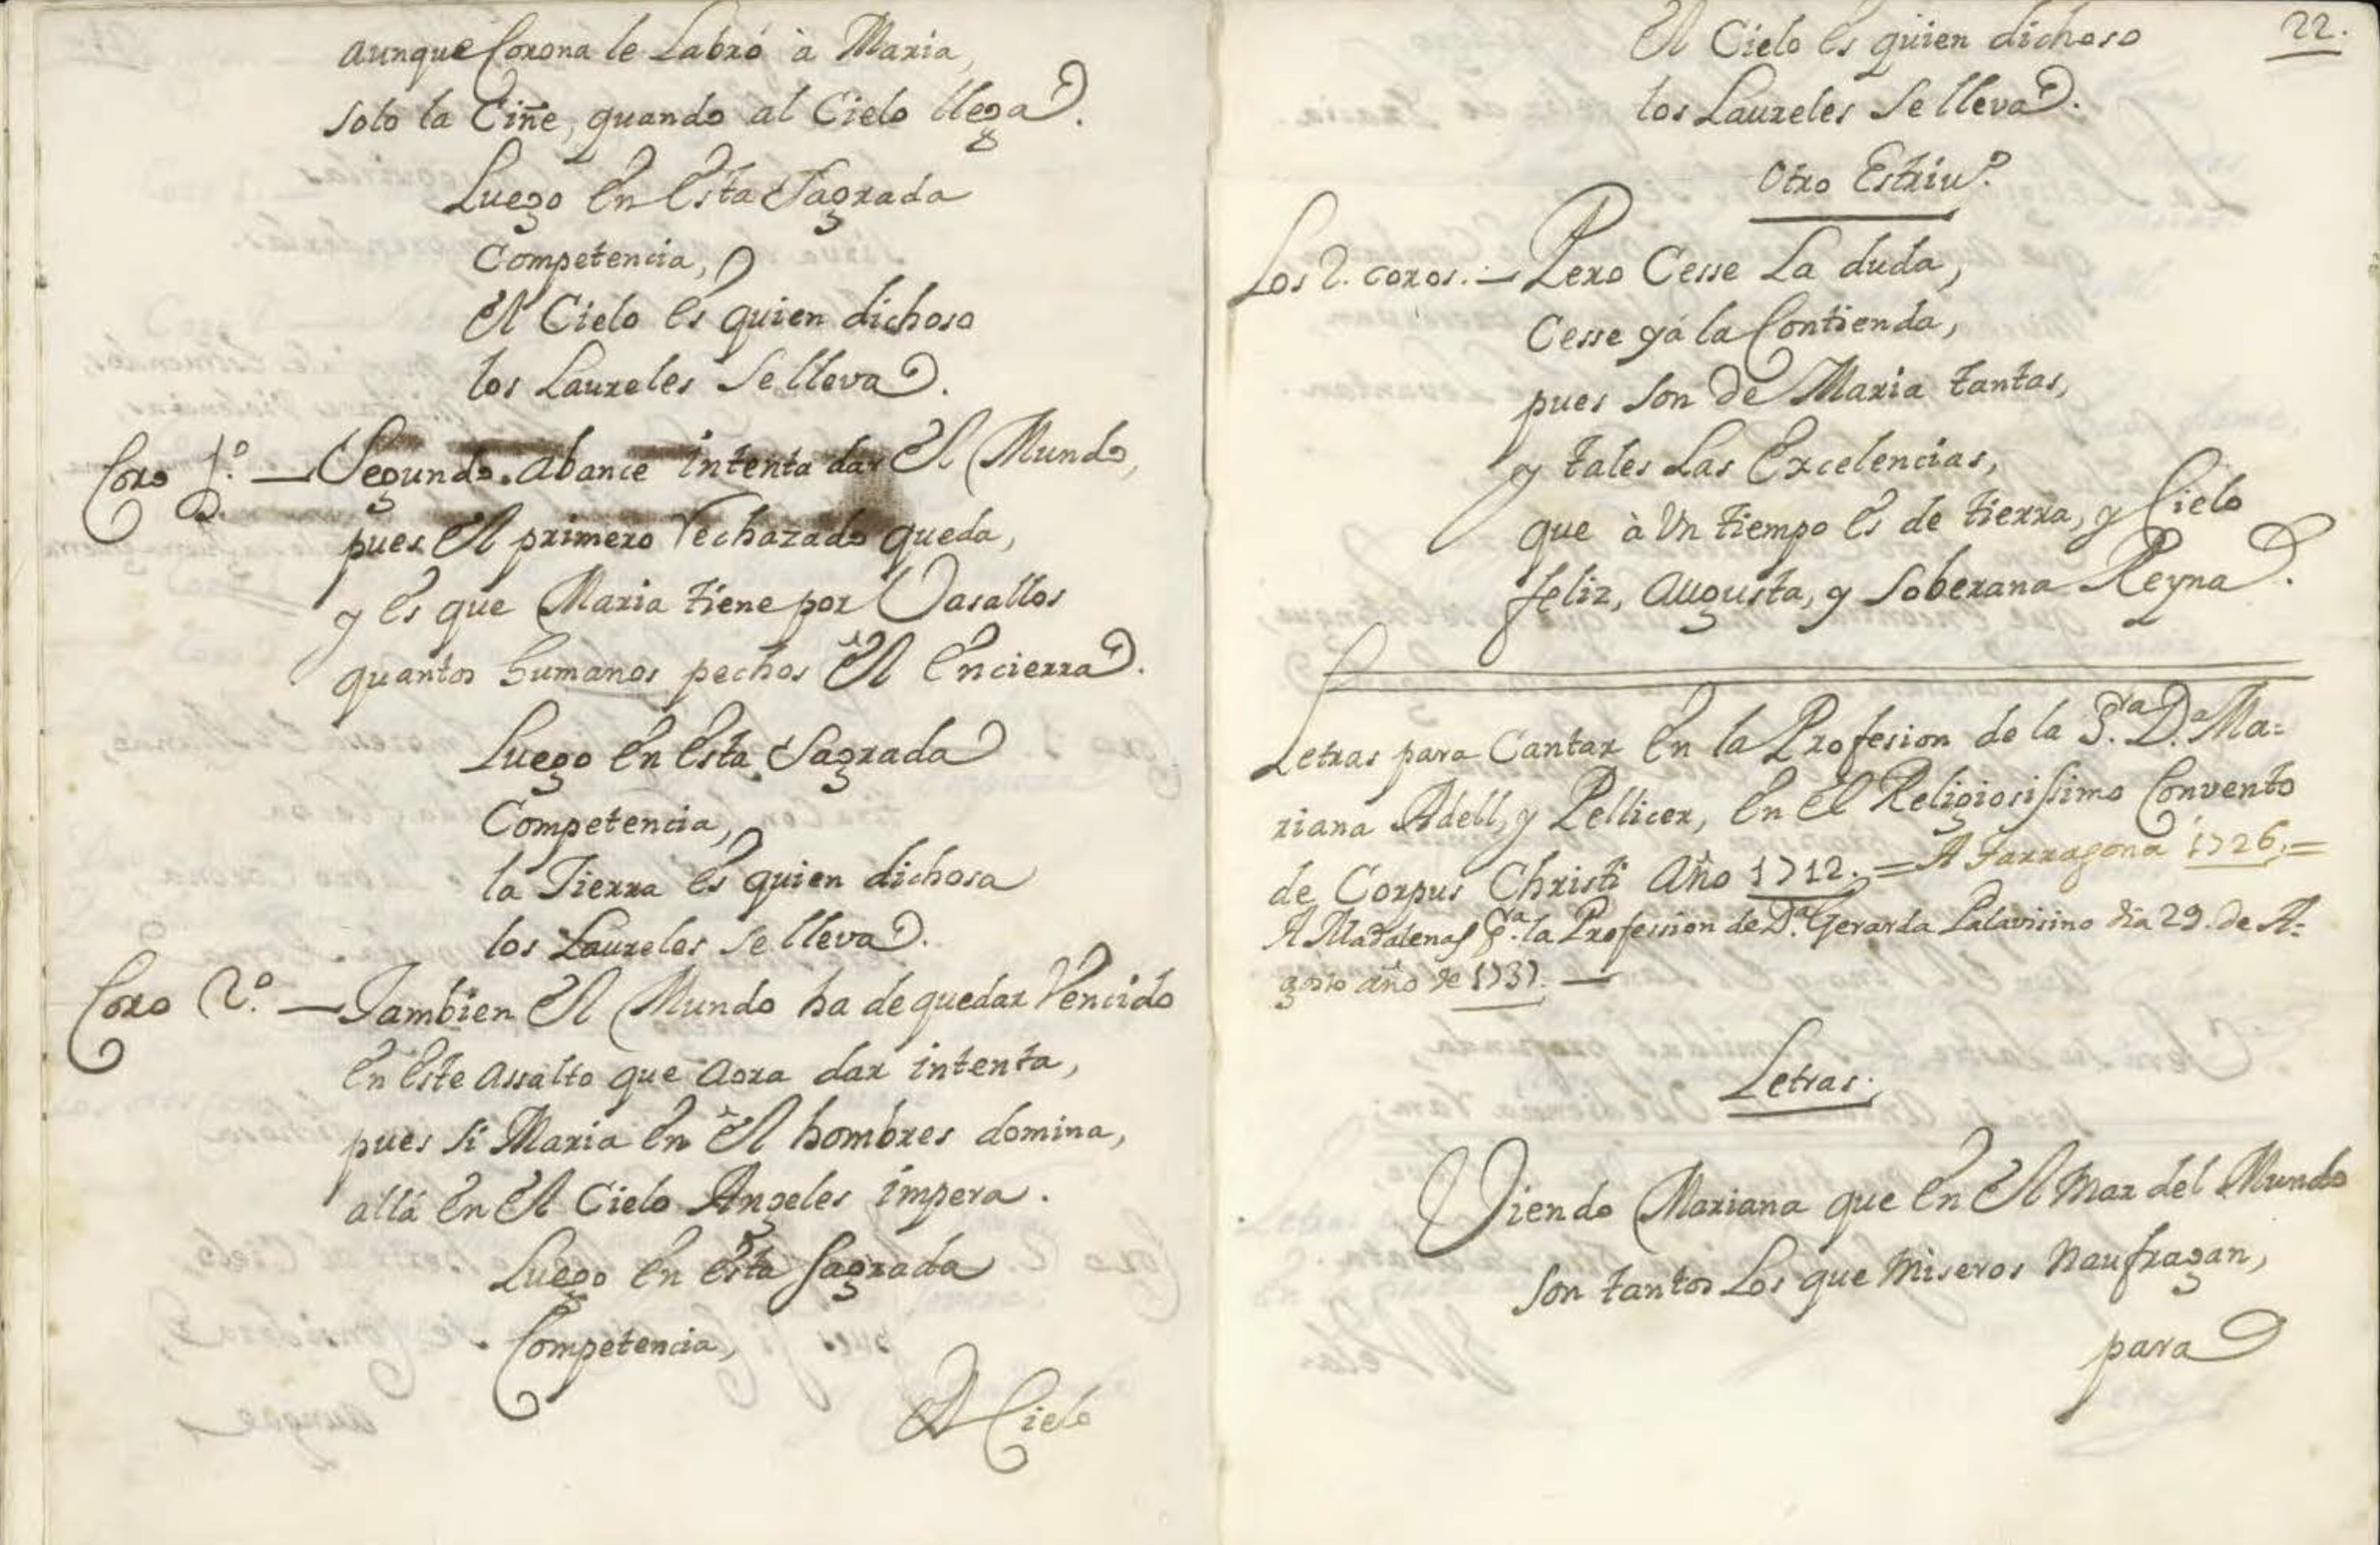 aunque Corona le Labró à Maria,
solo la Ciñe, quando al Cielo llega.
Luego en esta Sagrada
Competencia,
el Cielo es quien dichoso
los Laureles se lleva.
Coro 1.º — Segundo abance intenta dar el Mundo,
pues el primero rechazado queda,
y es que Maria tiene por Vasallos
quantos humanos pechos èl encierra.
Luego en esta Sagrada
Competencia,
la Tierra es quien dichosa
los Laureles se lleva.
Coro 2.º — Tambien el Mundo ha de quedar Vencido
en este assalto que aora dar intenta,
pues si Maria en èl hombres domina,
allá en el Cielo Angeles impera.
Luego en esta Sagrada
Competencia,
el Cielo
22.
el Cielo es quien dichoso
los Laureles se lleva.
Otro Estriv.º
Los 2. coros. — Pero Cesse La duda,
Cesse yá la Contienda,
pues son de Maria tantas,
y tales Las Excelencias,
que à Un tiempo es de tierra, y Cielo
feliz, Augusta, y Soberana Reyna.
Letras para Cantar en la Profesion de la S.ra D.a Ma=
riana Adell, y Pellicer, en el Religiosissimo Convento
de Corpus Christi Año 1712. = A Tarragona 1726. =
A Madalenas P.a la Profession de D.a Gerarda Palavisino dia 29. de A=
gosto año de 1737. —
Letras.
Viendo Mariana que en el Mar del Mundo
son tantos Los que Miseros Naufragan,
para